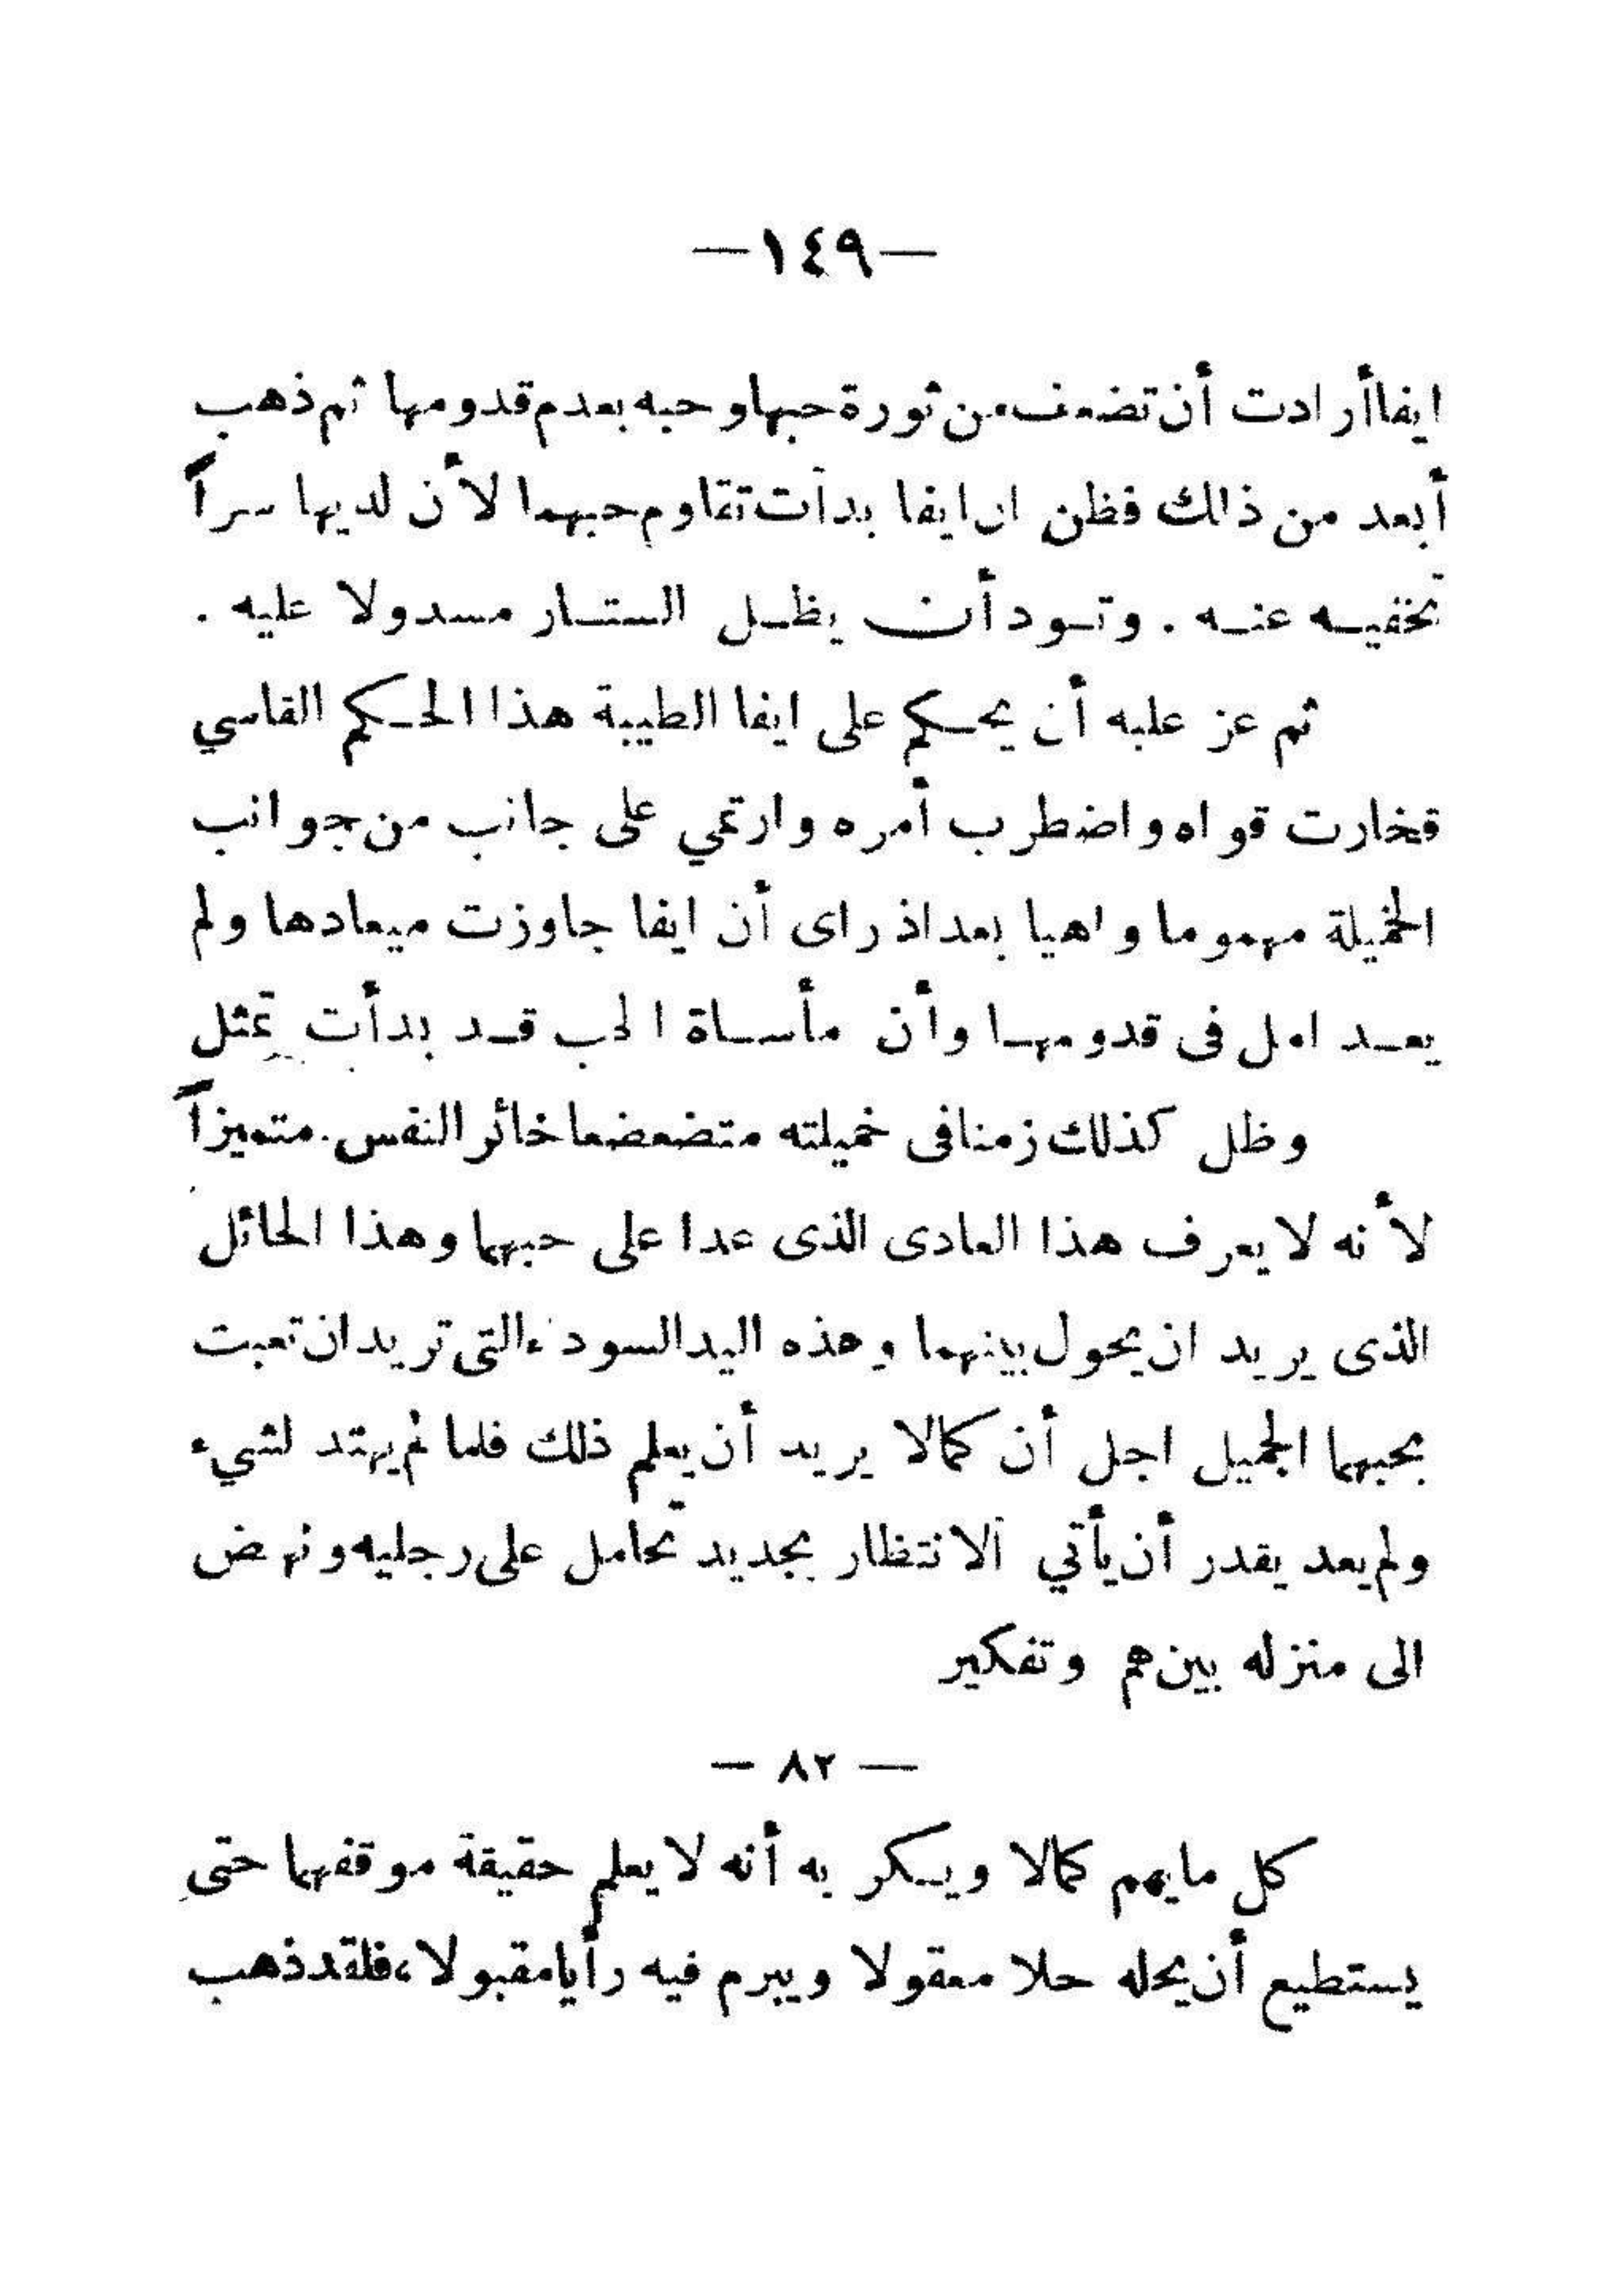 —١٤٩—
ايفا أرادت أن تضعف من ثورة حبها وحبه بعدم قدومها ثم ذهب
أبعد من ذالك فظن ان ايفا بدأت تقاوم حبهما لأن لديها سراً
تخفيه عنه . وتود أن يظل الستار مسدولا عليه .
ثم عز عليه أن يحكم على ايفا الطيبة هذا الحكم القاسي
فخارت قواه واضطرب أمره وارتمي على جانب من جوانب
الخميلة مهموما واهيا بعد اذ راى أن ايفا جاوزت ميعادها ولم
يعد امل فى قدومها وأن مأساة الحب قد بدأت تمثل
وظل كذلك زمنا فى خميلته متضعضعا خائر النفس. متميزاً
لأنه لا يعرف هذا العادى الذى عدا على حبهما وهذا الحائل
الذى يريد ان يحول بينهما وهذه اليد السوداء التى تريد ان تعبت
بحبهما الجميل اجل أن كمالا يريد أن يعلم ذلك فلما لم يهتد لشيء
ولم يعد يقدر أن يأتي الانتظار بجديد تحامل على رجليه ونهض
الى منزله بين هم وتفكير
— ٨٢ —
كل مايهم كمالا ويكر به أنه لا يعلم حقيقة موقفهما حتى
يستطيع أن يحله حلا معقولا ويبرم فيه رأيا مقبولا، فلقد ذهب